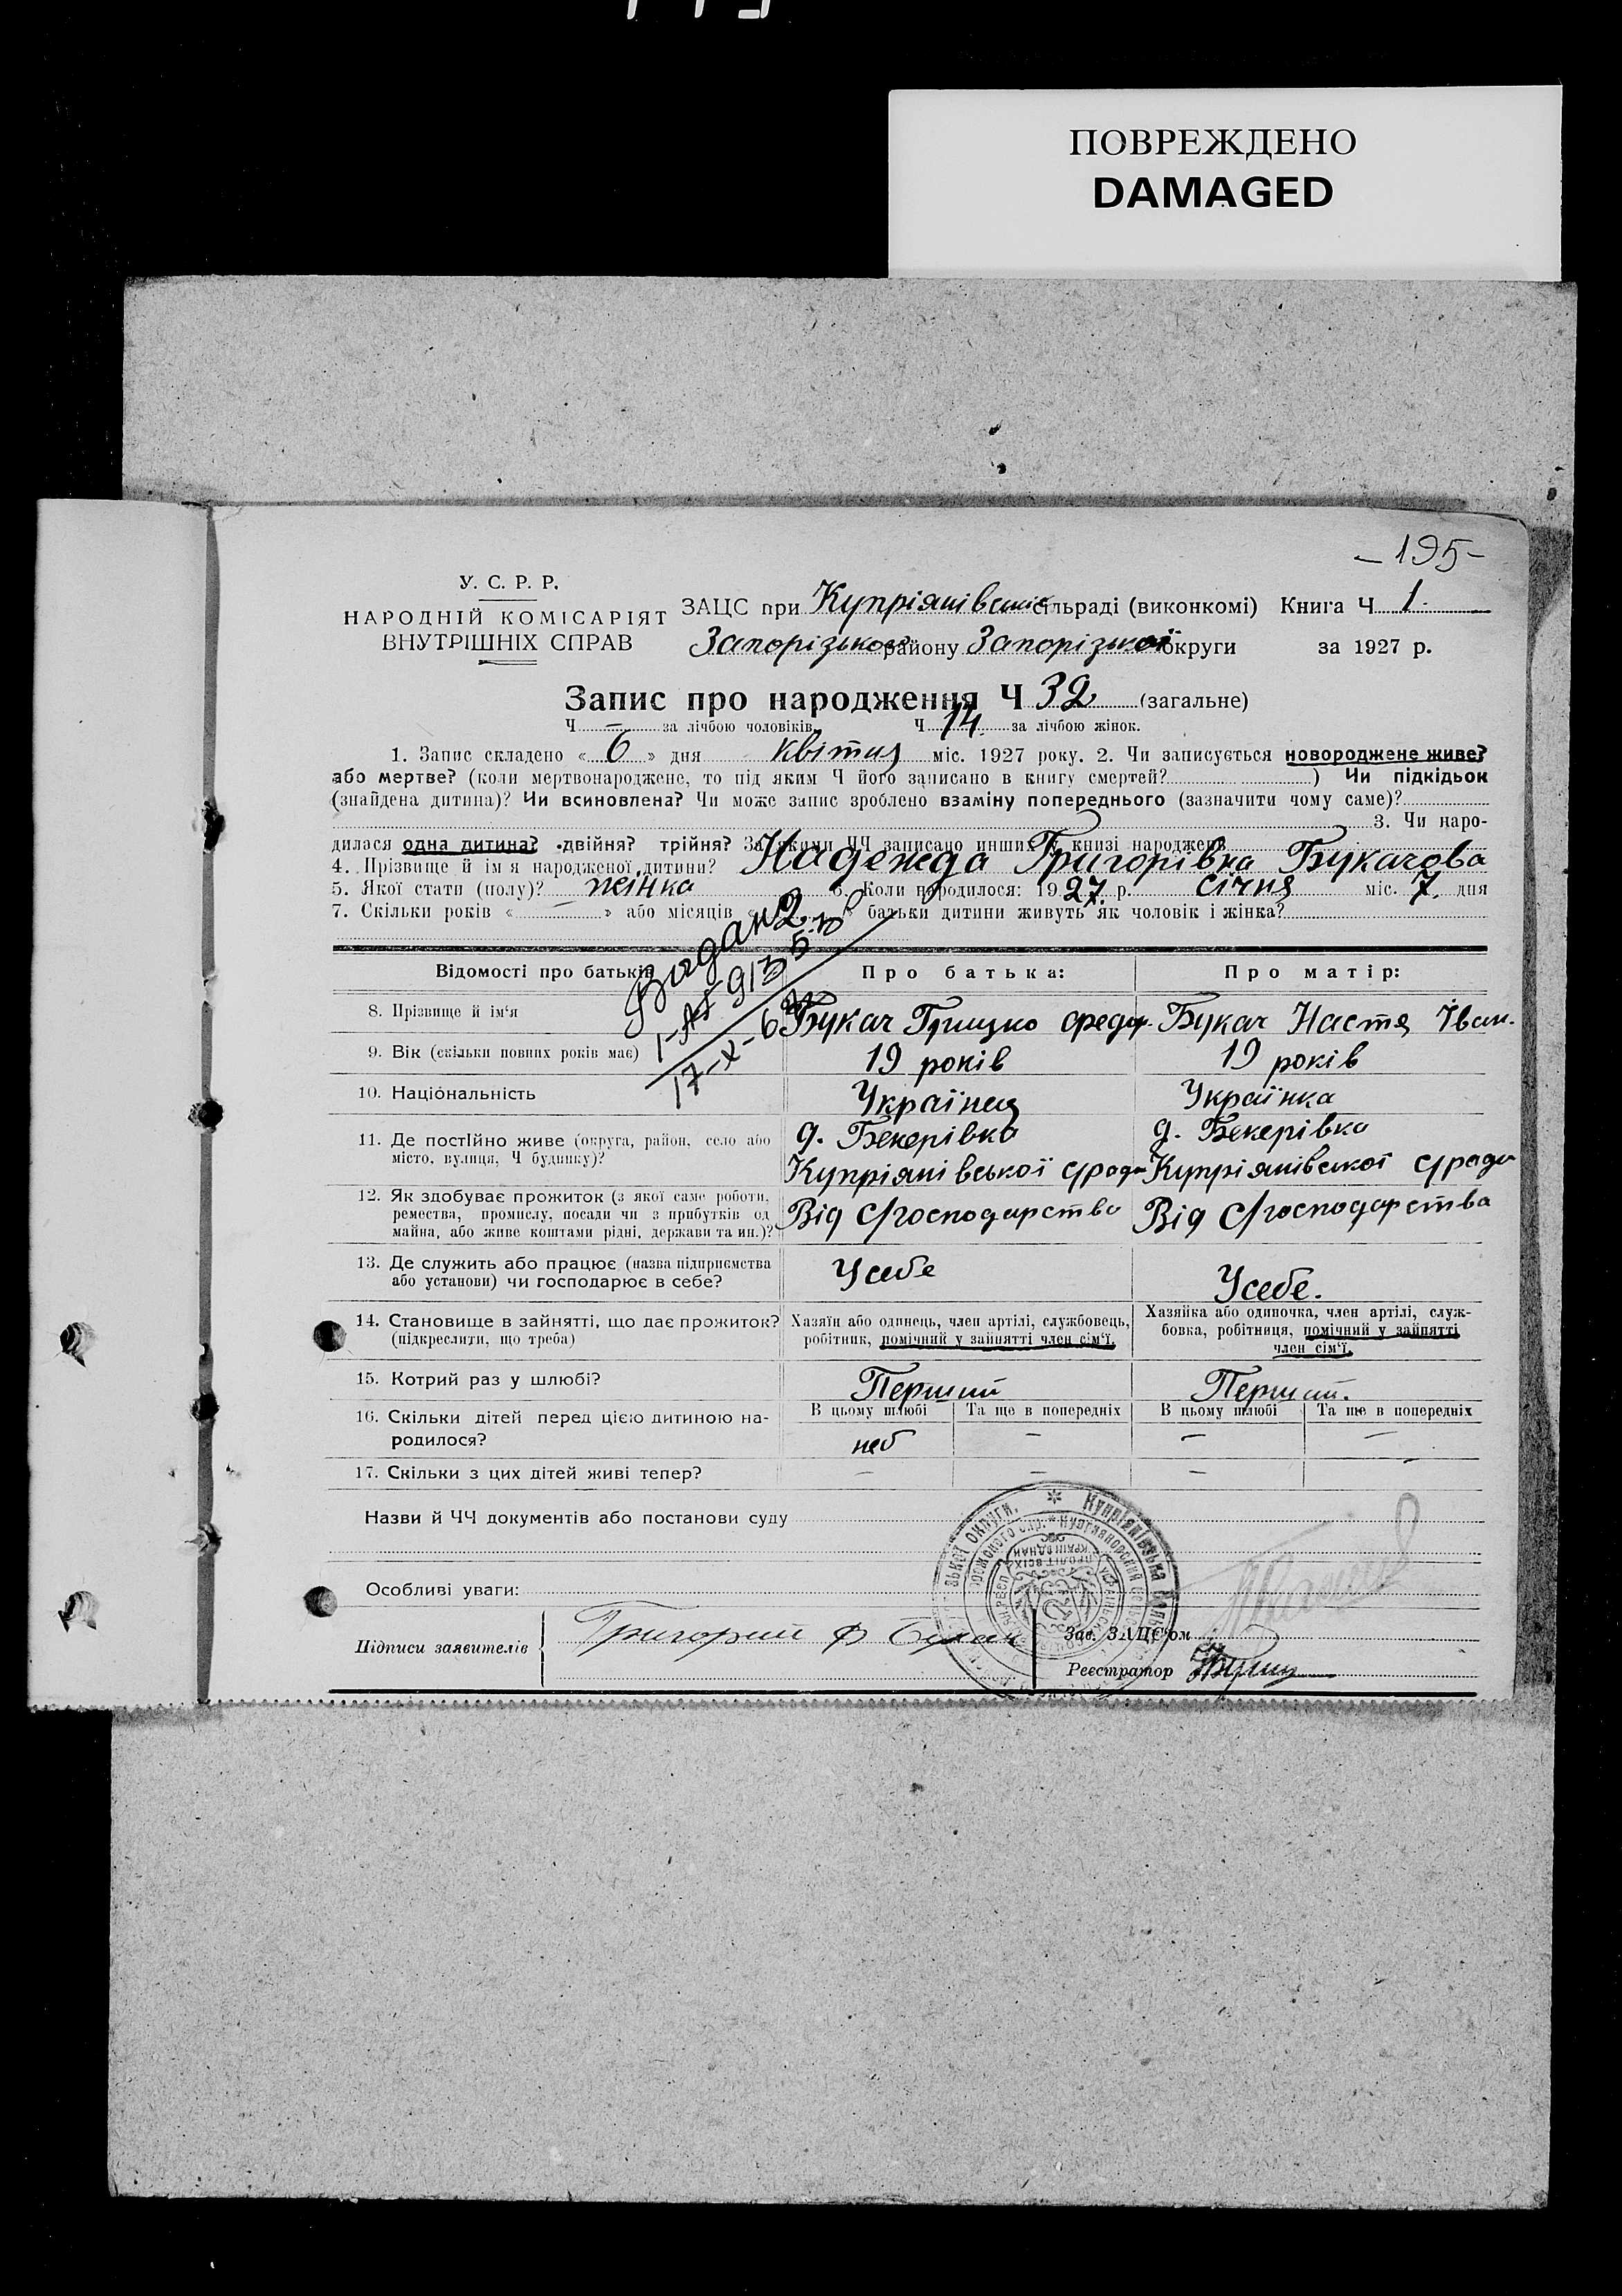 ПОВРЕЖДЕНО
DAMAGED
– 195 –
У. С. Р. Р.
НАРОДНІЙ КОМІСАРІЯТ
ВНУТРІШНІХ СПРАВ
ЗАЦС при Купріянівській сільраді (виконкомі) Книга Ч 1.
Запорізького району Запорізької округи за 1927 р.
Запис про народження Ч 32 (загальне)
Ч – за лічбою чоловіків Ч 14. за лічбою жінок.
1. Запис складено « 6 » дня квітня міс. 1927 року. 2. Чи записується новороджене живе?
або мертве? (коли мертвонароджене, то під яким Ч його записано в книгу смертей? ) Чи підкідьок
(знайдена дитина)? Чи всиновлена? Чи може запис зроблено взаміну попереднього (зазначити чому саме)?
3. Чи наро-
дилася одна дитина? двійня? трійня? За якими ЧЧ записано инших у книзі народжень
4. Прізвище й ім'я народженої дитини? Надежда Григорівна Букачова
5. Якої стати (полу)? жінка 6. Коли народилося: 1927. р. січня міс. 7. дня
7. Скільки років « – » або місяців « » батьки дитини живуть як чоловік і жінка?
Відомості про батьків Про батька: Про матір:
8. Прізвище й ім'я Букач Грицко Федор. Букач Настя Іван.
9. Вік (скільки повних років має) 19 років 19 років
10. Національність Українец Українка
11. Де постійно живе (округа, район, село або д. Бекерівка д. Бекерівка
місто, вулиця, Ч будинку)? Купріянівської с/ради Купріянівської с/ради
12. Як здобуває прожиток (з якої саме роботи,
ремества, промислу, посади чи з прибутків од Від с/господарства Від с/господарства
майна, або живе коштами рідні, держави та ин.)?
13. Де служить або працює (назва підприємства
або установи) чи господарює в себе? У себе У себе.
14. Становище в зайнятті, що дає прожиток? Хазяїн або одинець, член артілі, службовець, Хазяйка або одиночка, член артілі, служ-
(підкреслити, що треба) робітник, помічний у зайнятті член сім'ї. бовка, робітниця, помічний у зайнятті
член сім'ї.
15. Котрий раз у шлюбі? Перший Перший.
16. Скільки дітей перед цією дитиною на- В цьому шлюбі Та ще в попередніх В цьому шлюбі Та ще в попередніх
родилося? – – –
17. Скільки з цих дітей живі тепер? – – –
Назви й ЧЧ документів або постанови суду
Особливі уваги:
Підписи заявителів Григорий Ф
Зав. ЗАЦС'ом
Реєстратор